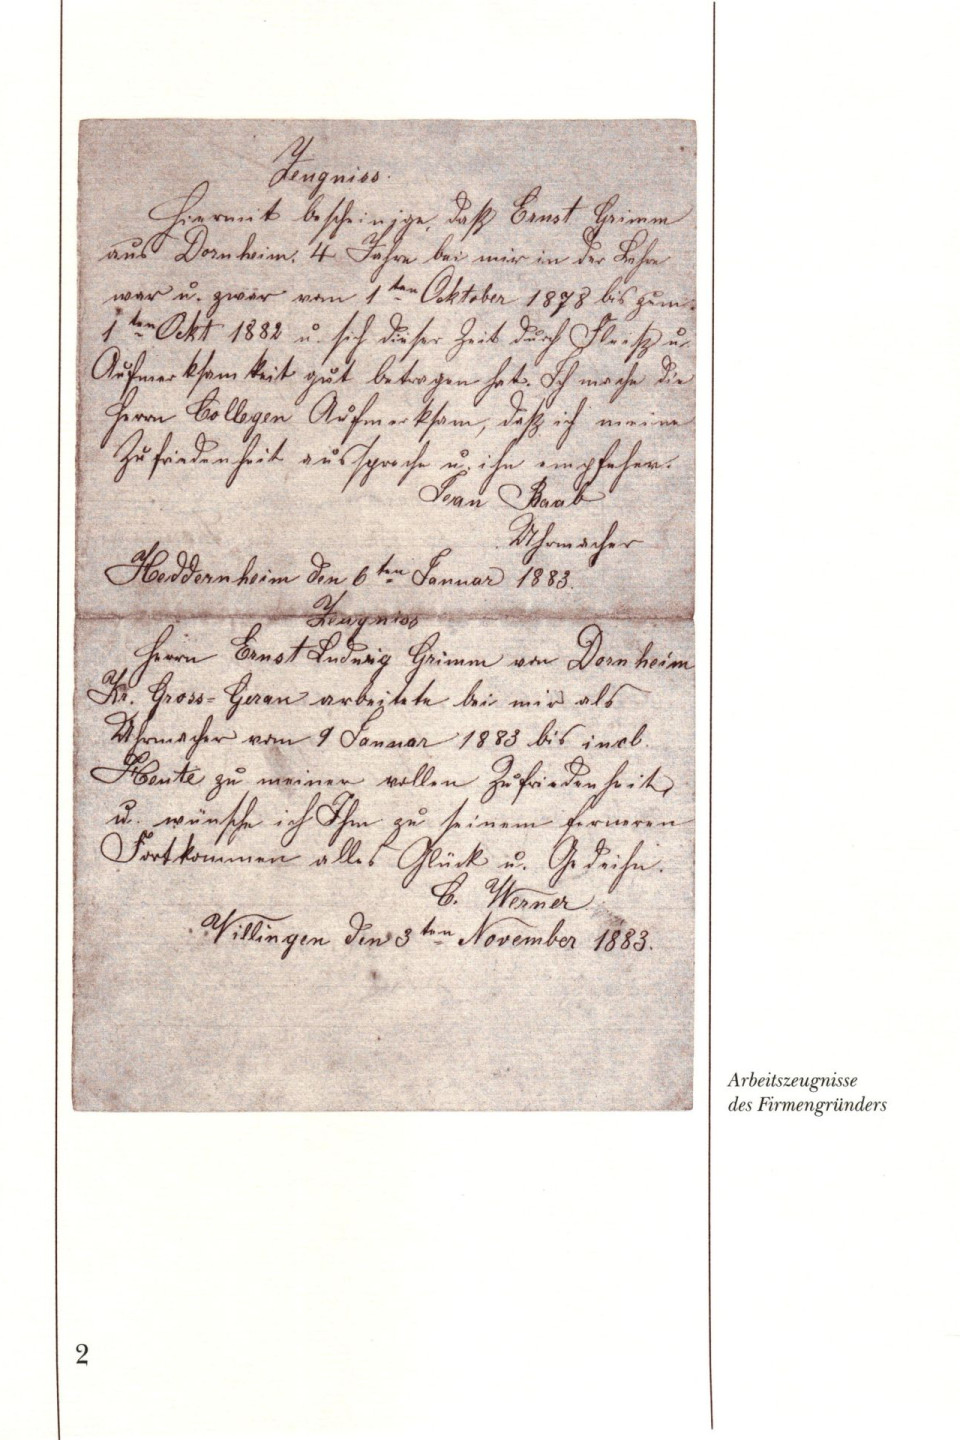 Zeugniss.
Hiermit bescheinige, daß Ernst Grimm
aus Dornheim, 4 Jahre bei mir in der Lehre
war u. zwar vom 1ten Oktober 1878 bis zum
1ten Okt 1882 u. sich dieser Zeit durch Fleiß u.
Aufmerksamkeit gut betragen hat. Ich mache die
Herrn Collegen Aufmerksam, daß ich meine
Zufriedenheit ausspreche u. ihn empfehle.
Jean Raab
Uhrmacher
Heddernheim den 6ten Januar 1883.
Zeugniss
Herrn Ernst Ludwig Grimm von Dornheim
Kr. Gross-Gerau arbeitete bei mir als
Uhrmacher vom 9 Januar 1883 bis incl.
Heute zu meiner vollen Zufriedenheit,
u. wünsche ich Ihm zu seinem ferneren
Fortkommen alles Glück u. Gedeihn.
C. Werner
Villingen den 3ten November 1883.
Arbeitszeugnisse
des Firmengründers
2